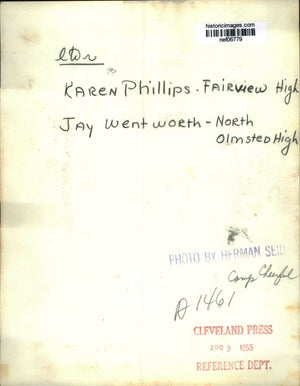 historicimages.com
nef06779
Karen Phillips - Fairview High
Jay Wentworth - North
Olmsted High
PHOTO BY HERMAN SEID
Camp Cheerful
A 1461
CLEVELAND PRESS
APR 9 1955
REFERENCE DEPT.